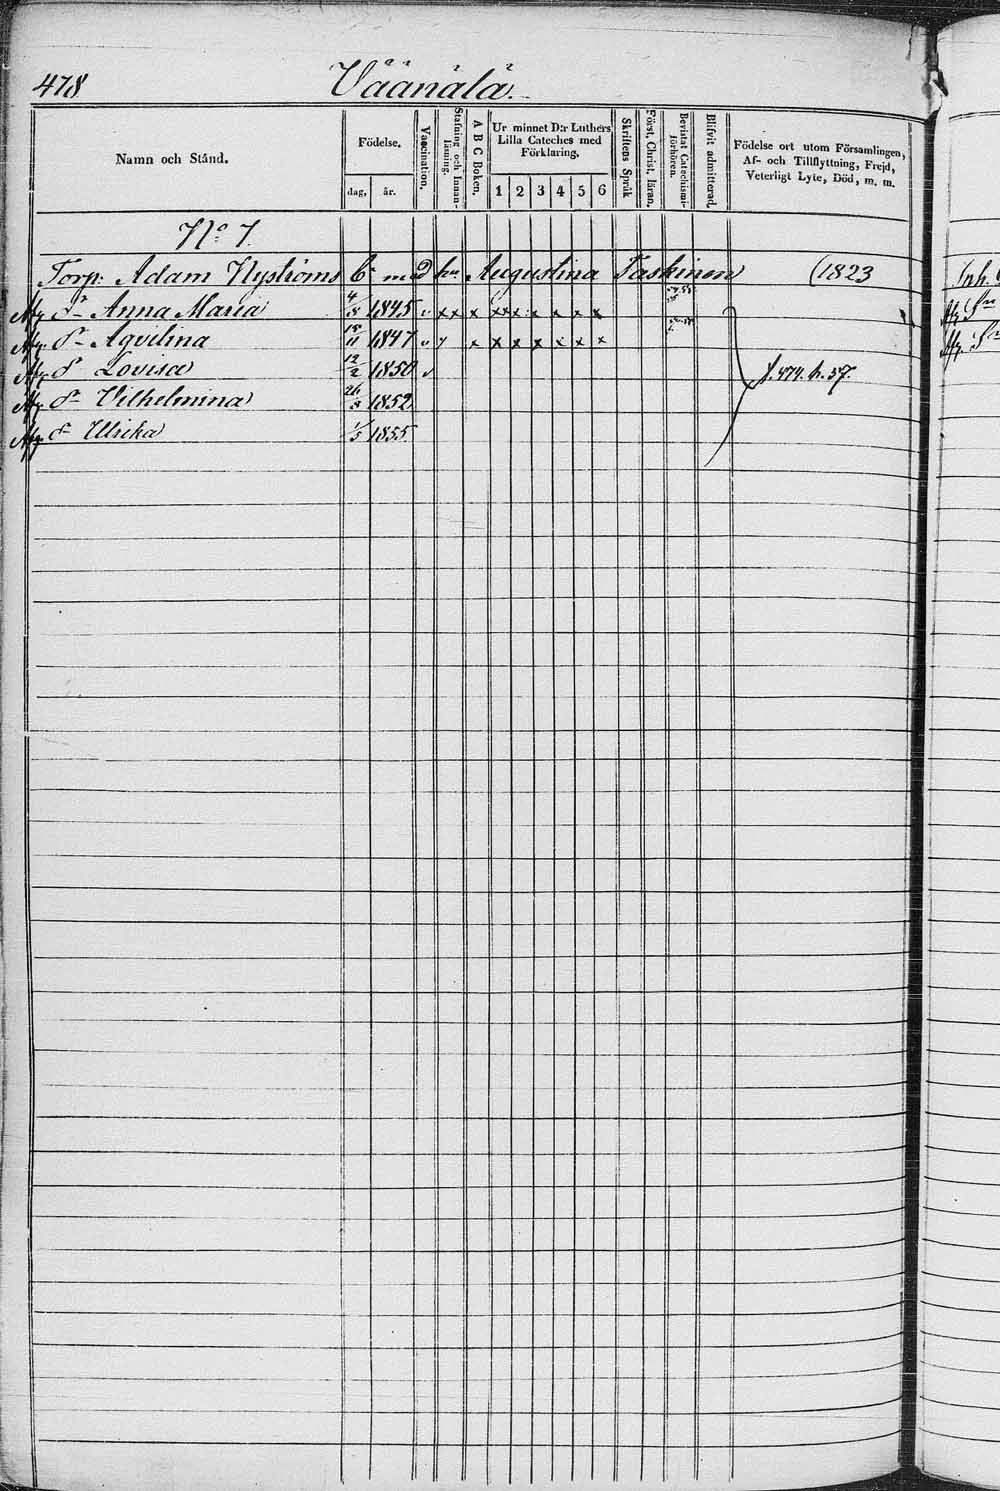 478 Väänälä.
Namn och Stånd.
Födelse.
dag, år.
Vaccination.
Stafning och Innanläsning.
A B C Boken.
Ur minnet D:r Luthers Lilla Cateches med Förklaring.
1 2 3 4 5 6
Skriftens Språk
Först. Christ. läran.
Bevistat Catechismiförhören.
Blifvit admitterad.
Födelse ort utom Församlingen, Af- och Tillflyttning, Frejd, Veterligt Lyte, Död, m. m.
N:o 7
Torp: Adam Nyströms B: med hu Augustina Taskinen (1823
Afg. d:r Anna Maria 4/8 1845 v x x x x x x x x x x
Afg. d:r Aqvilina 18/11 1847 v y x x x x x x x
Afg d:r Lovisa 12/2 1850 v f. 474. h. 37.
Afg d:r Vilhelmina 26/8 1852
Afg d:r Ulrika 1/5 1855